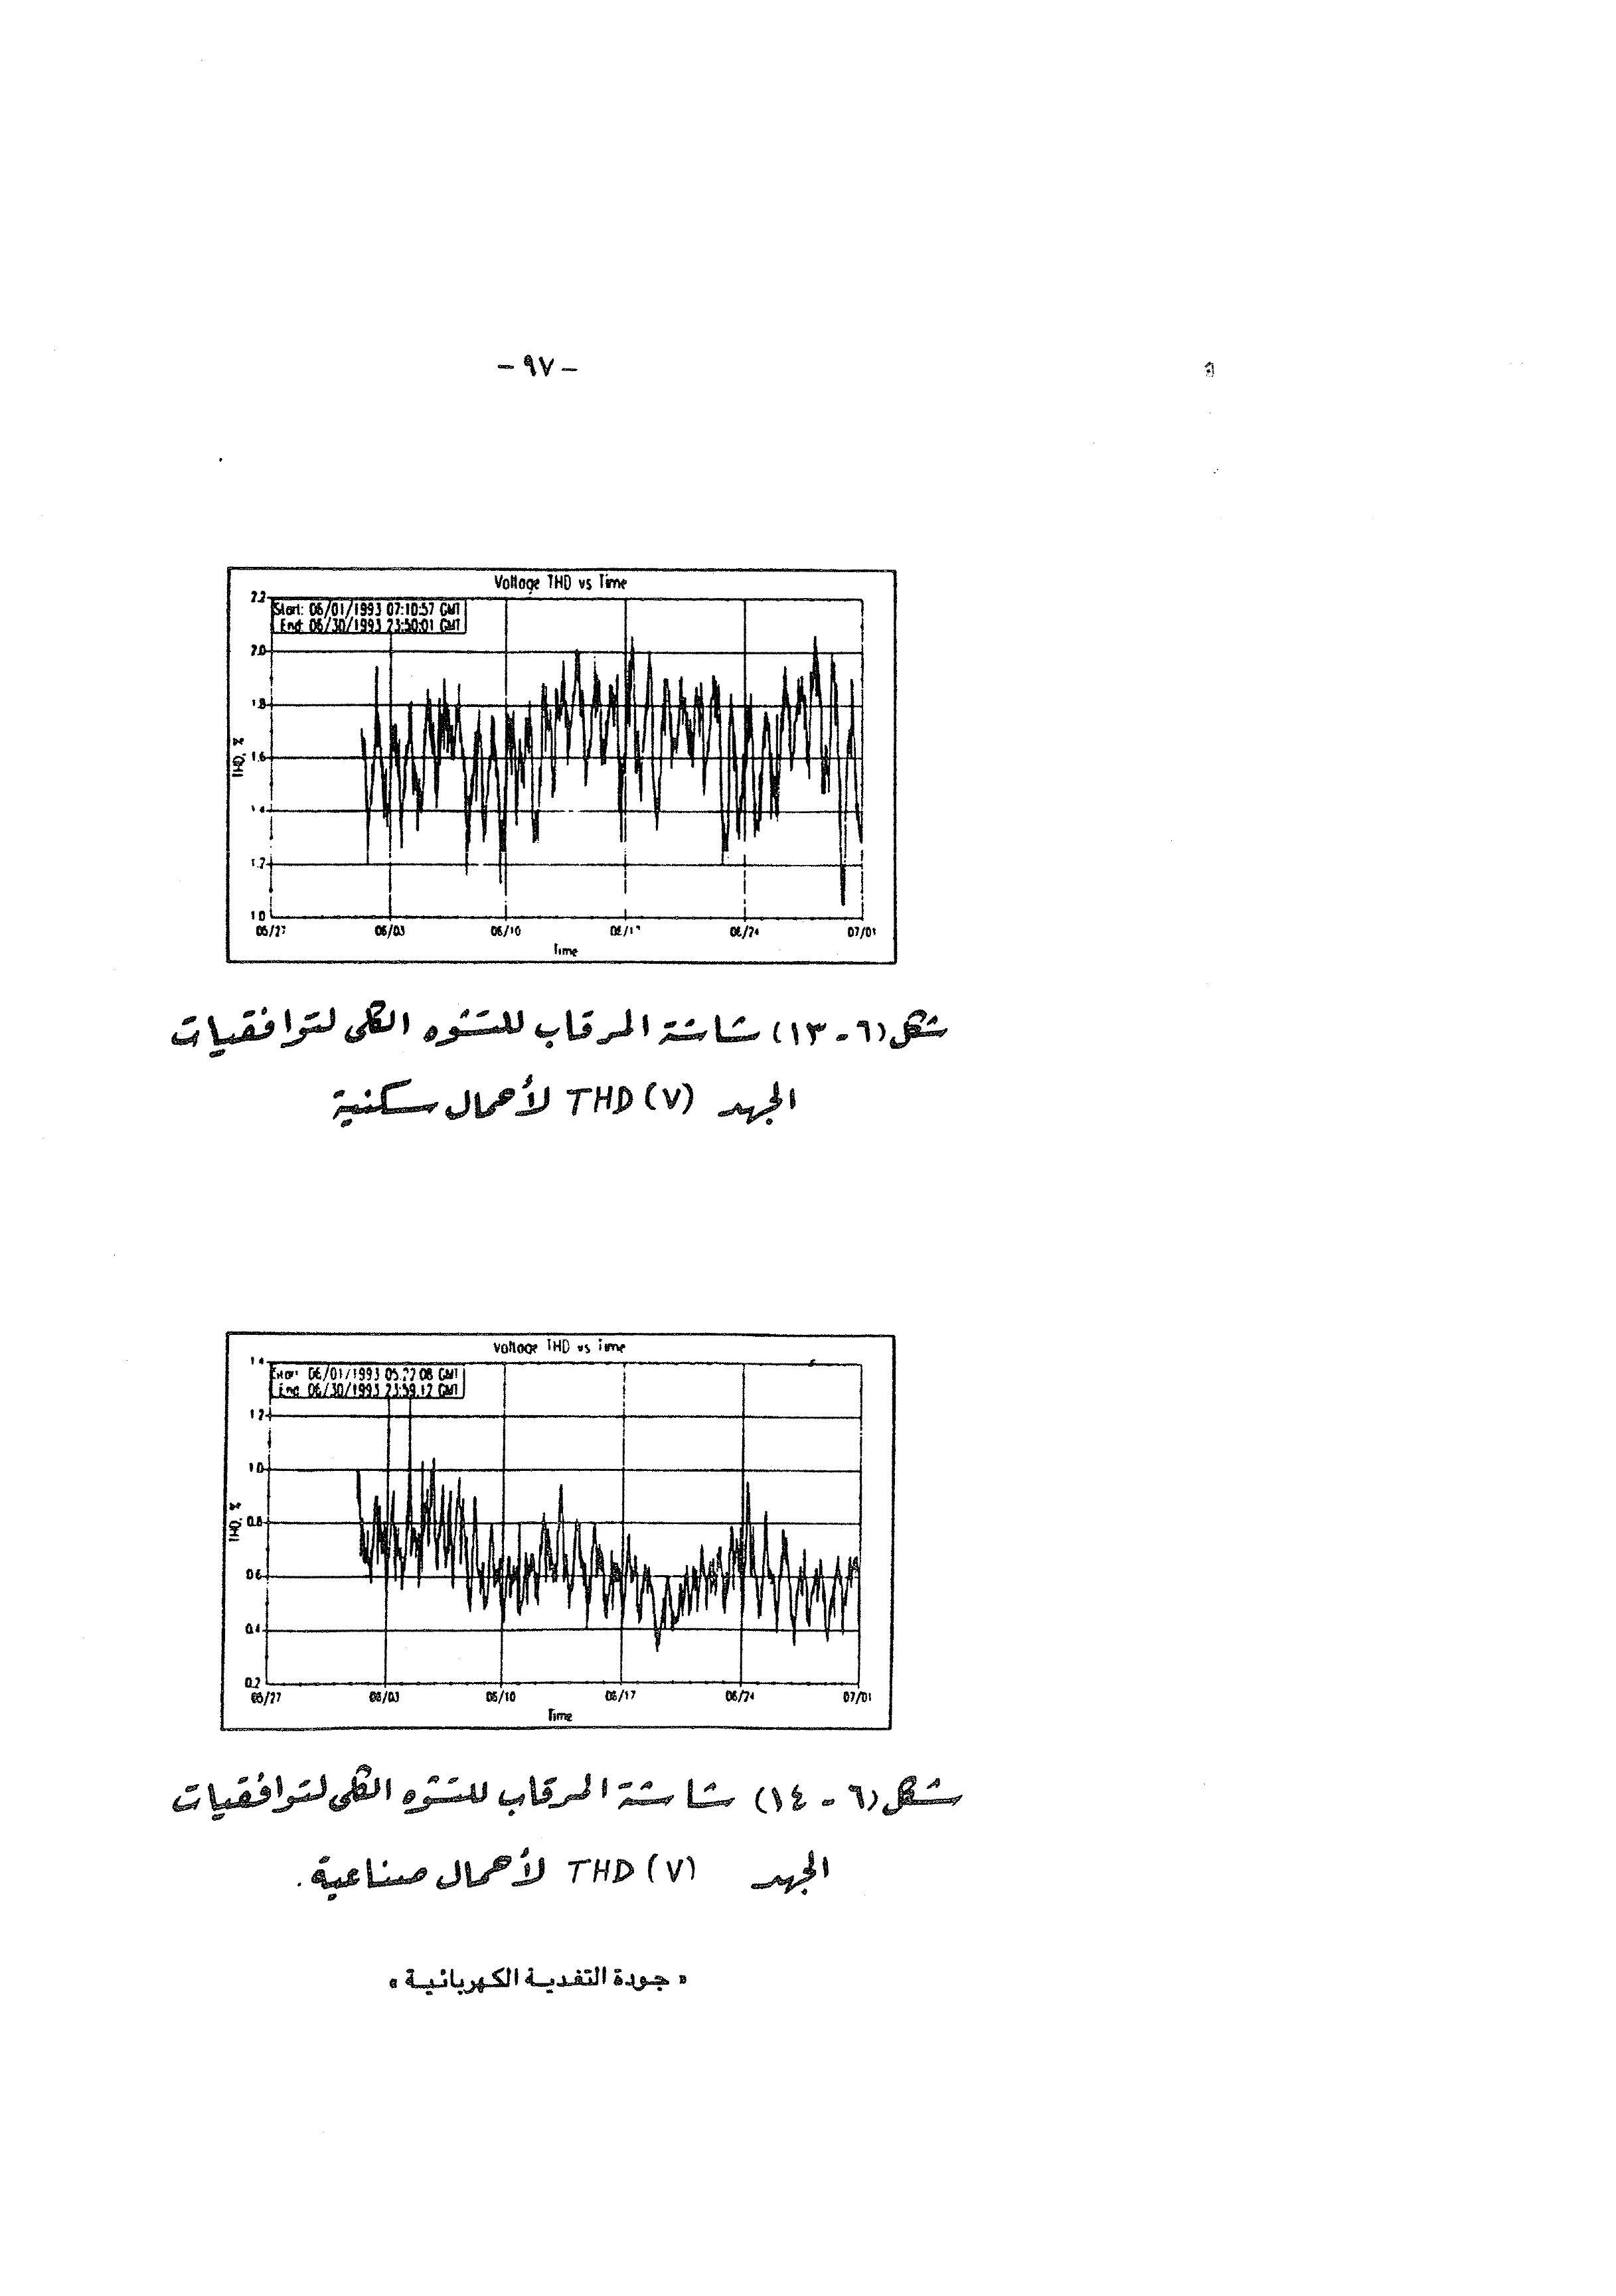 - ٩٧ -
Voltage THD vs Time
2.2
Start: 06/01/1993 07:10:57 GMT
End: 06/30/1993 23:50:01 GMT
2.0
1.8
THD, %
1.6
1.4
1.2
1.0
05/27 06/03 06/10 06/24 07/01
Time
شكل (٦-١٣) شاشة المرقاب للتشوه الكلى لتوافقيات
الجهد THD (V) لأحمال سكنية
Voltage THD vs Time
1.4
Start: 06/01/1993 05:22:08 GMT
End: 06/30/1993 23:59:12 GMT
1.2
1.0
THD, %
0.8
0.6
0.4
0.2
05/27 06/03 06/10 06/17 06/24 07/01
Time
شكل (٦-١٤) شاشة المرقاب للتشوه الكلى لتوافقيات
الجهد THD (V) لأحمال صناعية.
« جودة التغدية الكهربائية »